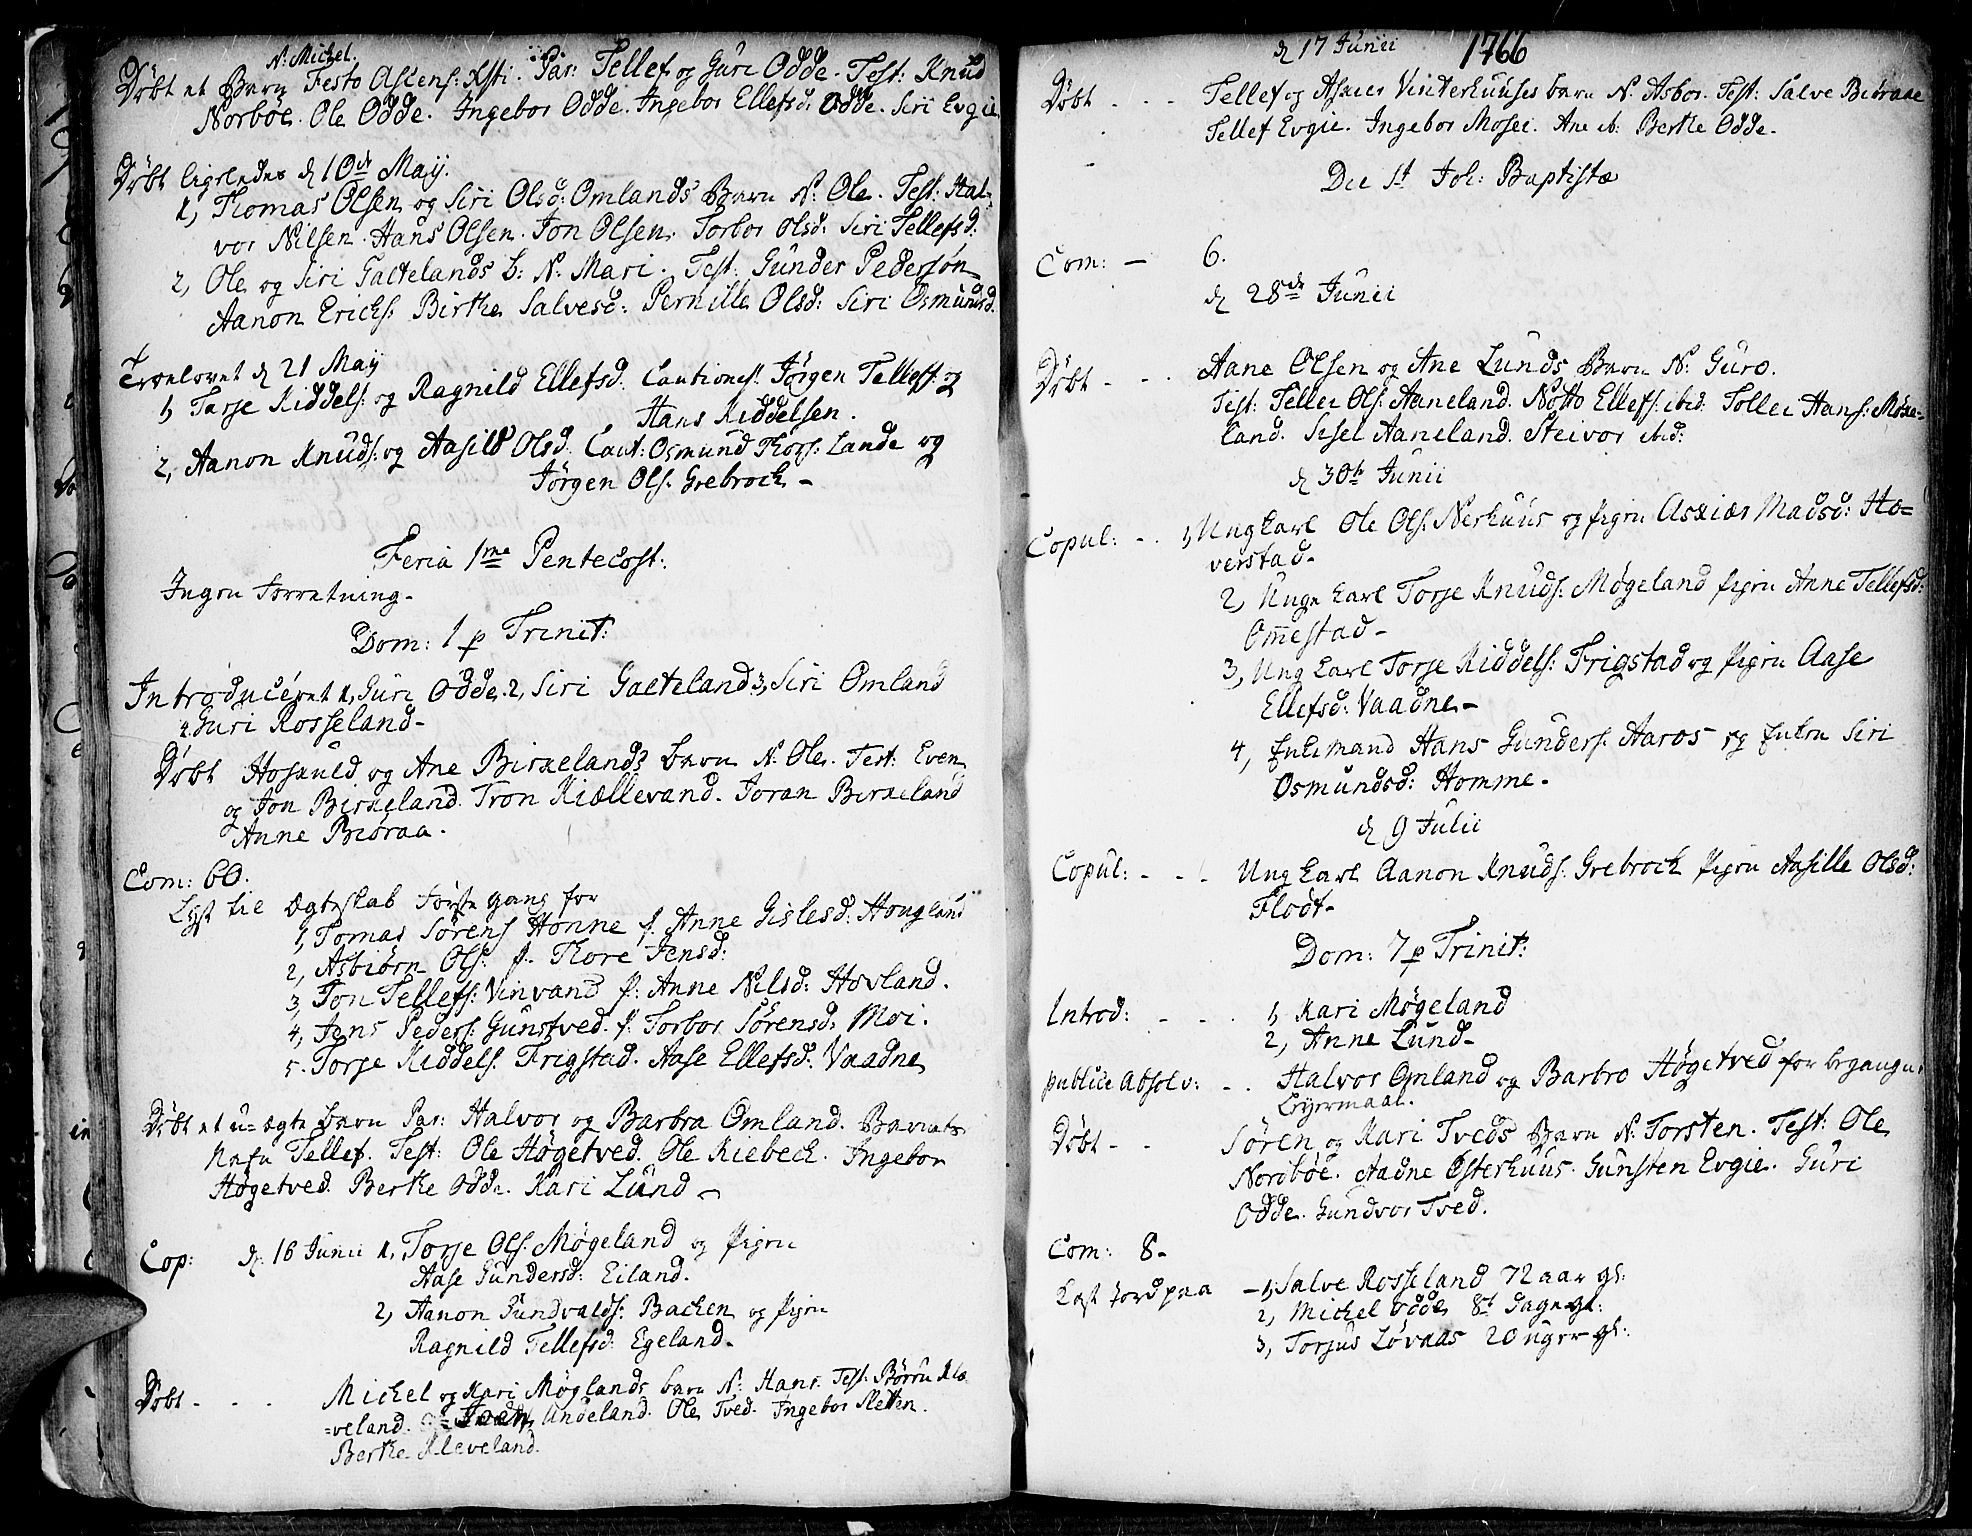 N: Michel.
Döbt et Barn Festo Ascens: Xsti. Par: Tellef og Guri Odde. Test: Knud
Norböe. Ole Odde. Ingebor Odde. Ingebor Ellefsd: Odde. Siri Evgie
Döbt ligeledes d 10de Maij.
1, Thomas Olsen og Siri Olsd: Omlands Barn N: Ole. Test: Hal-
vor Nilsen. Hans Olsen. Jon Olsen. Torbor Olsd: Siri Tellefsd:
2, Ole og Siri Gaetelands b: N: Mari. Test: Gunder Pedersøn
Aanon Erichs: Birthe Salvesd: Pernille Olsd: Siri Osmundsd:
Troelovet d 21 Maij
1, Tarje Kiddels: og Ragnild Ellefsd: Cautionest: Jørgen Tellefs: og
Hans Kiddelsen.
2, Aanon Knuds: og Aasild Olsd: Caut: Osmund Thors: Lande og
Jörgen Ols: Grebrock -
Feria 1me Pentecost:
Ingen Forretning -
Dom: 1 p Trinit:
Introduceret 1, Guri Odde. 2, Siri Gaeteland 3, Siri Omland
4. Guri Rosseland -
Döbt Hosauld og Ane Birkelands barn N: Ole. Test: Even
og Jon Birkeland. Tron Kiællevand. Joran Birkeland
Anne Biøraa.
Com: 60.
Lyst til Ægteskab første gang for
1, Tomas Sörens Honne p: Anne Gislesd: Hougland
2, Asbiørn Ols: p: Thore Jensd:
3, Jon Tellefs: Vinvand p: Anne Nilsd: Hovland.
4, Jens Peders: Gunstved. p: Torbor Sörensd: Moi.
5. Torje Kiddels: Frigstad. Aase Ellefsd: Vaadne
Döbt et u-ægte barn Par: Halvor og Barbra Omland. Barnets
Nafn Tellef. Test: Ole Høgetved. Ole Kiebeck. Ingebor
Høgetved. Berthe Odde. Kari Lund -
Cop: d: 16 Junii 1, Torje Ols: Møgeland og Pigen
Aase Gundersd: Eiland.
2, Aanon Gundvalds: Backen og Pigen
Ragnild Tellefsd: Egeland -
Döbt - - - Michel og Kari Møglands barn N: Hans. Test: Børru Kle
=veland. Andeland. Ole Tved. Ingebor Sletten.
Berthe Kleveland.
d 17 Junii 1766
Döbt - - - Tellef og Asnes Vinterhuuses barn N: Asbor. Test: Salve Biøraae
Tellef Evgie. Ingebor Mosei. Ane ib: Berthe Odde.
Die St Joh: Baptistæ
Com: - 6.
d 28de Junii
Döbt - - Aane Olsen og Ane Lunds Barn N: Guro.
Test: Tellei Ols: Aaneland. Notto Ellefs: ibid. Tollei Hans: Møse-
land. Sisel Aaneland. Steivor ibid:
d 30te Junii
Copul: - - 1, Ung Karl Ole Ols: Nerhuus og pigen Askier Madsd: Ho=
verstad -
2, Unge Karl Torje Knuds: Møgeland pigen Anne Tellefsd:
Omestad -
3, Ung Karl Torje Kiddels: Frigstad og Pigen Aase
Ellefsd: Vaadne -
4, Enkemand Hans Gunders: Aaros og Enken Siri
Osmundsd: Homme -
d 9 Julii
Copul: - - - Ung Karl Aanon Knuds: Grebrock Pigen Aasille Olsd:
Flodt -
Dom: 7 p Trinit:
Introd: - - - 1, Kari Møgeland
2, Anne Lund -
publice Absolv: - - Halvor Omland og Barbro Høgetved for begangne
Leyermaal.
Döbt - - Sören og Kari Tveds Barn N: Torsten. Test: Ole
Nordböe. Aadne Østerhuus. Gunsten Evgie. Guri
Odde. Gundvor Tved.
Com: 8 -
Kast Jord paa - 1, Salve Rosseland 72 aar gl:
2, Michel Odde 8t dage gl:
3, Torjus Løvaas 20 uger gl: